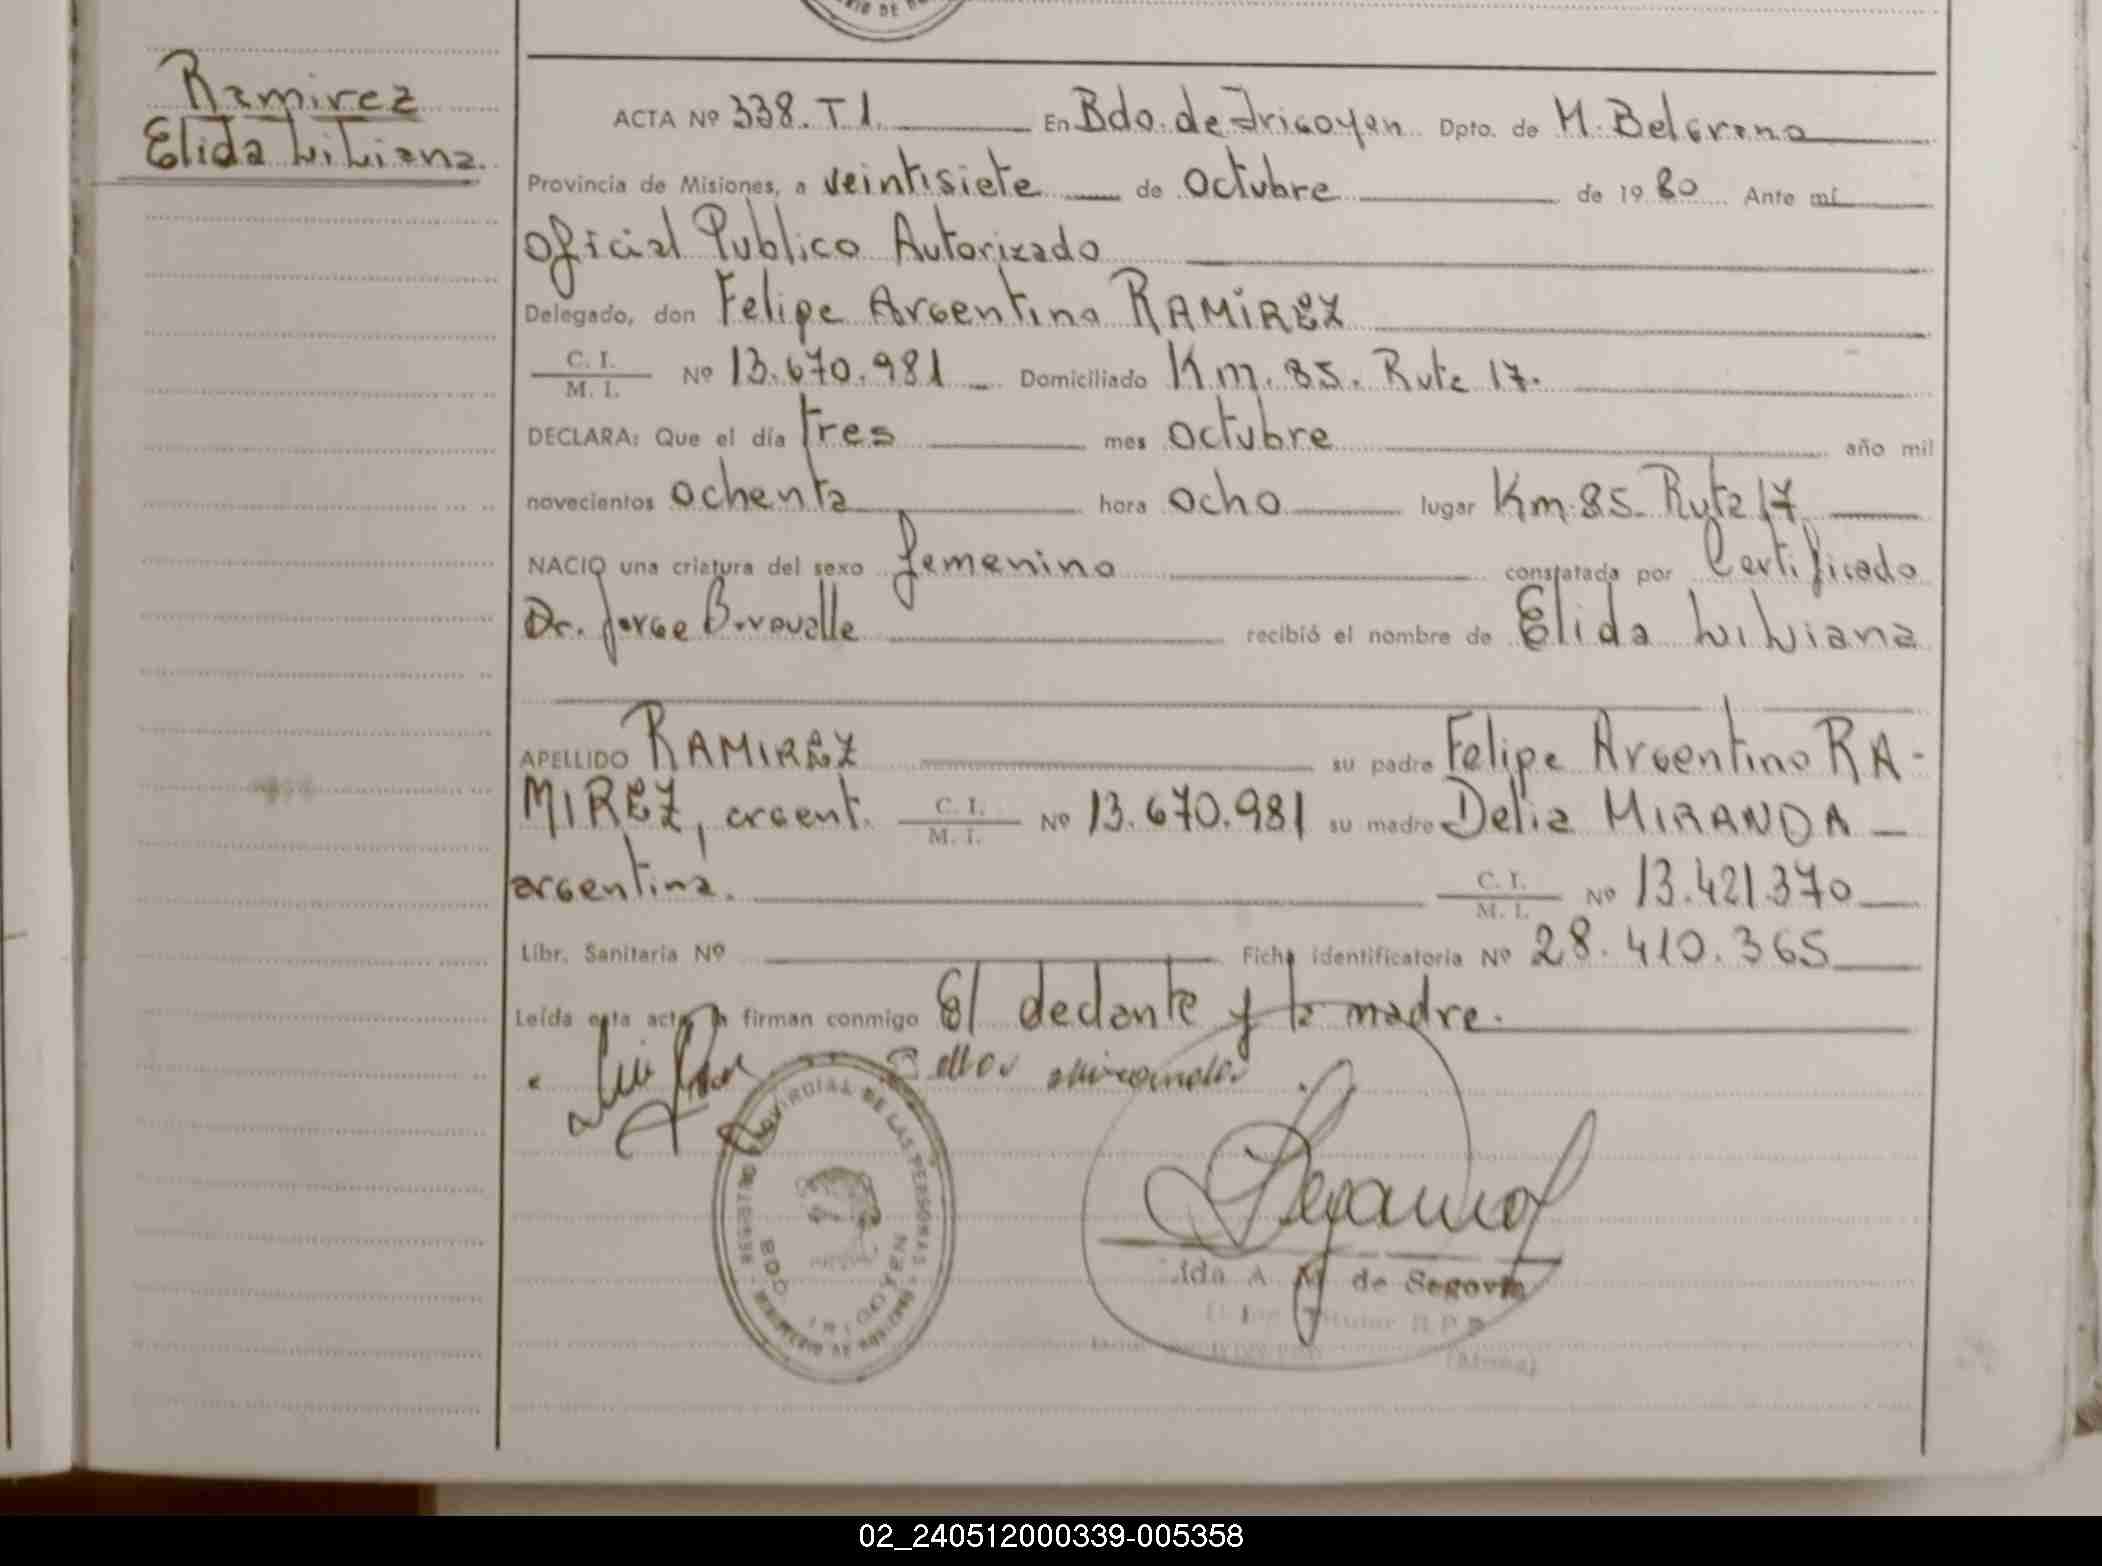 Ramirez
Elida Liliana.
ACTA Nº 338. T I. En Bdo. de Irigoyen Dpto. de M. Belgrano
Provincia de Misiones, a veintisiete de Octubre de 1980 Ante mí
Oficial Publico Autorizado
Delegado, don Felipe Argentino RAMIREZ
C. I.
M. I. Nº 13.670.981 Domiciliado Km. 85. Ruta 17.
DECLARA: Que el día tres mes octubre año mil
novecientos ochenta hora ocho lugar Km. 85. Ruta 17
NACIO una criatura del sexo femenino constatada por Certificado
Dr. Jorge recibió el nombre de Elida Liliana
APELLIDO RAMIREZ su padre Felipe Argentino RA-
MIREZ, argent. C. I. M. I. Nº 13.670.981 su madre Delia MIRANDA
argentina. C. I. M. I. Nº 13.421.370
Libr. Sanitaria Nº Ficha identificatoria Nº 28.410.365
Leída esta acta la firman conmigo El declante y la madre.
PROVINCIAL DE LAS PERSONAS
BDO. IRIGOYEN
A. M. de Segovia
02_240512000339-005358